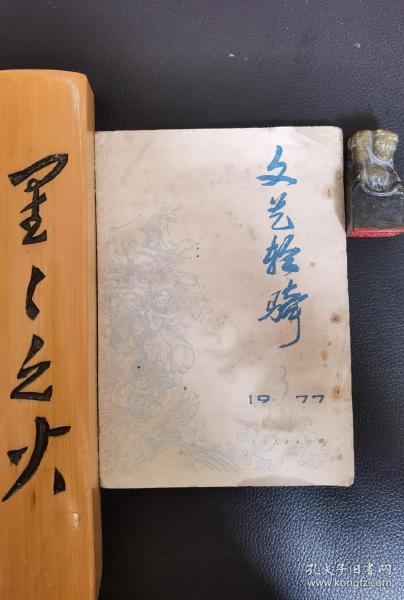 星々之火
文艺轻骑
3
19 77
上海人民出版社
孔夫子旧书网
www.kongfz.com